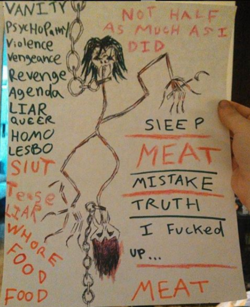 VANITY
PSYCHOPATHY
Violence
Vengeance
Revenge
Agenda
LIAR
QUEER
HOMO
LESBO
SlUT
Tease
LIAR
WHORE
FOOD
FOOD
NOT HALF
AS MUCH AS I
DID
SlEEP
MEAT
MISTAKE
TRUTH
I Fucked
up...
MEAT